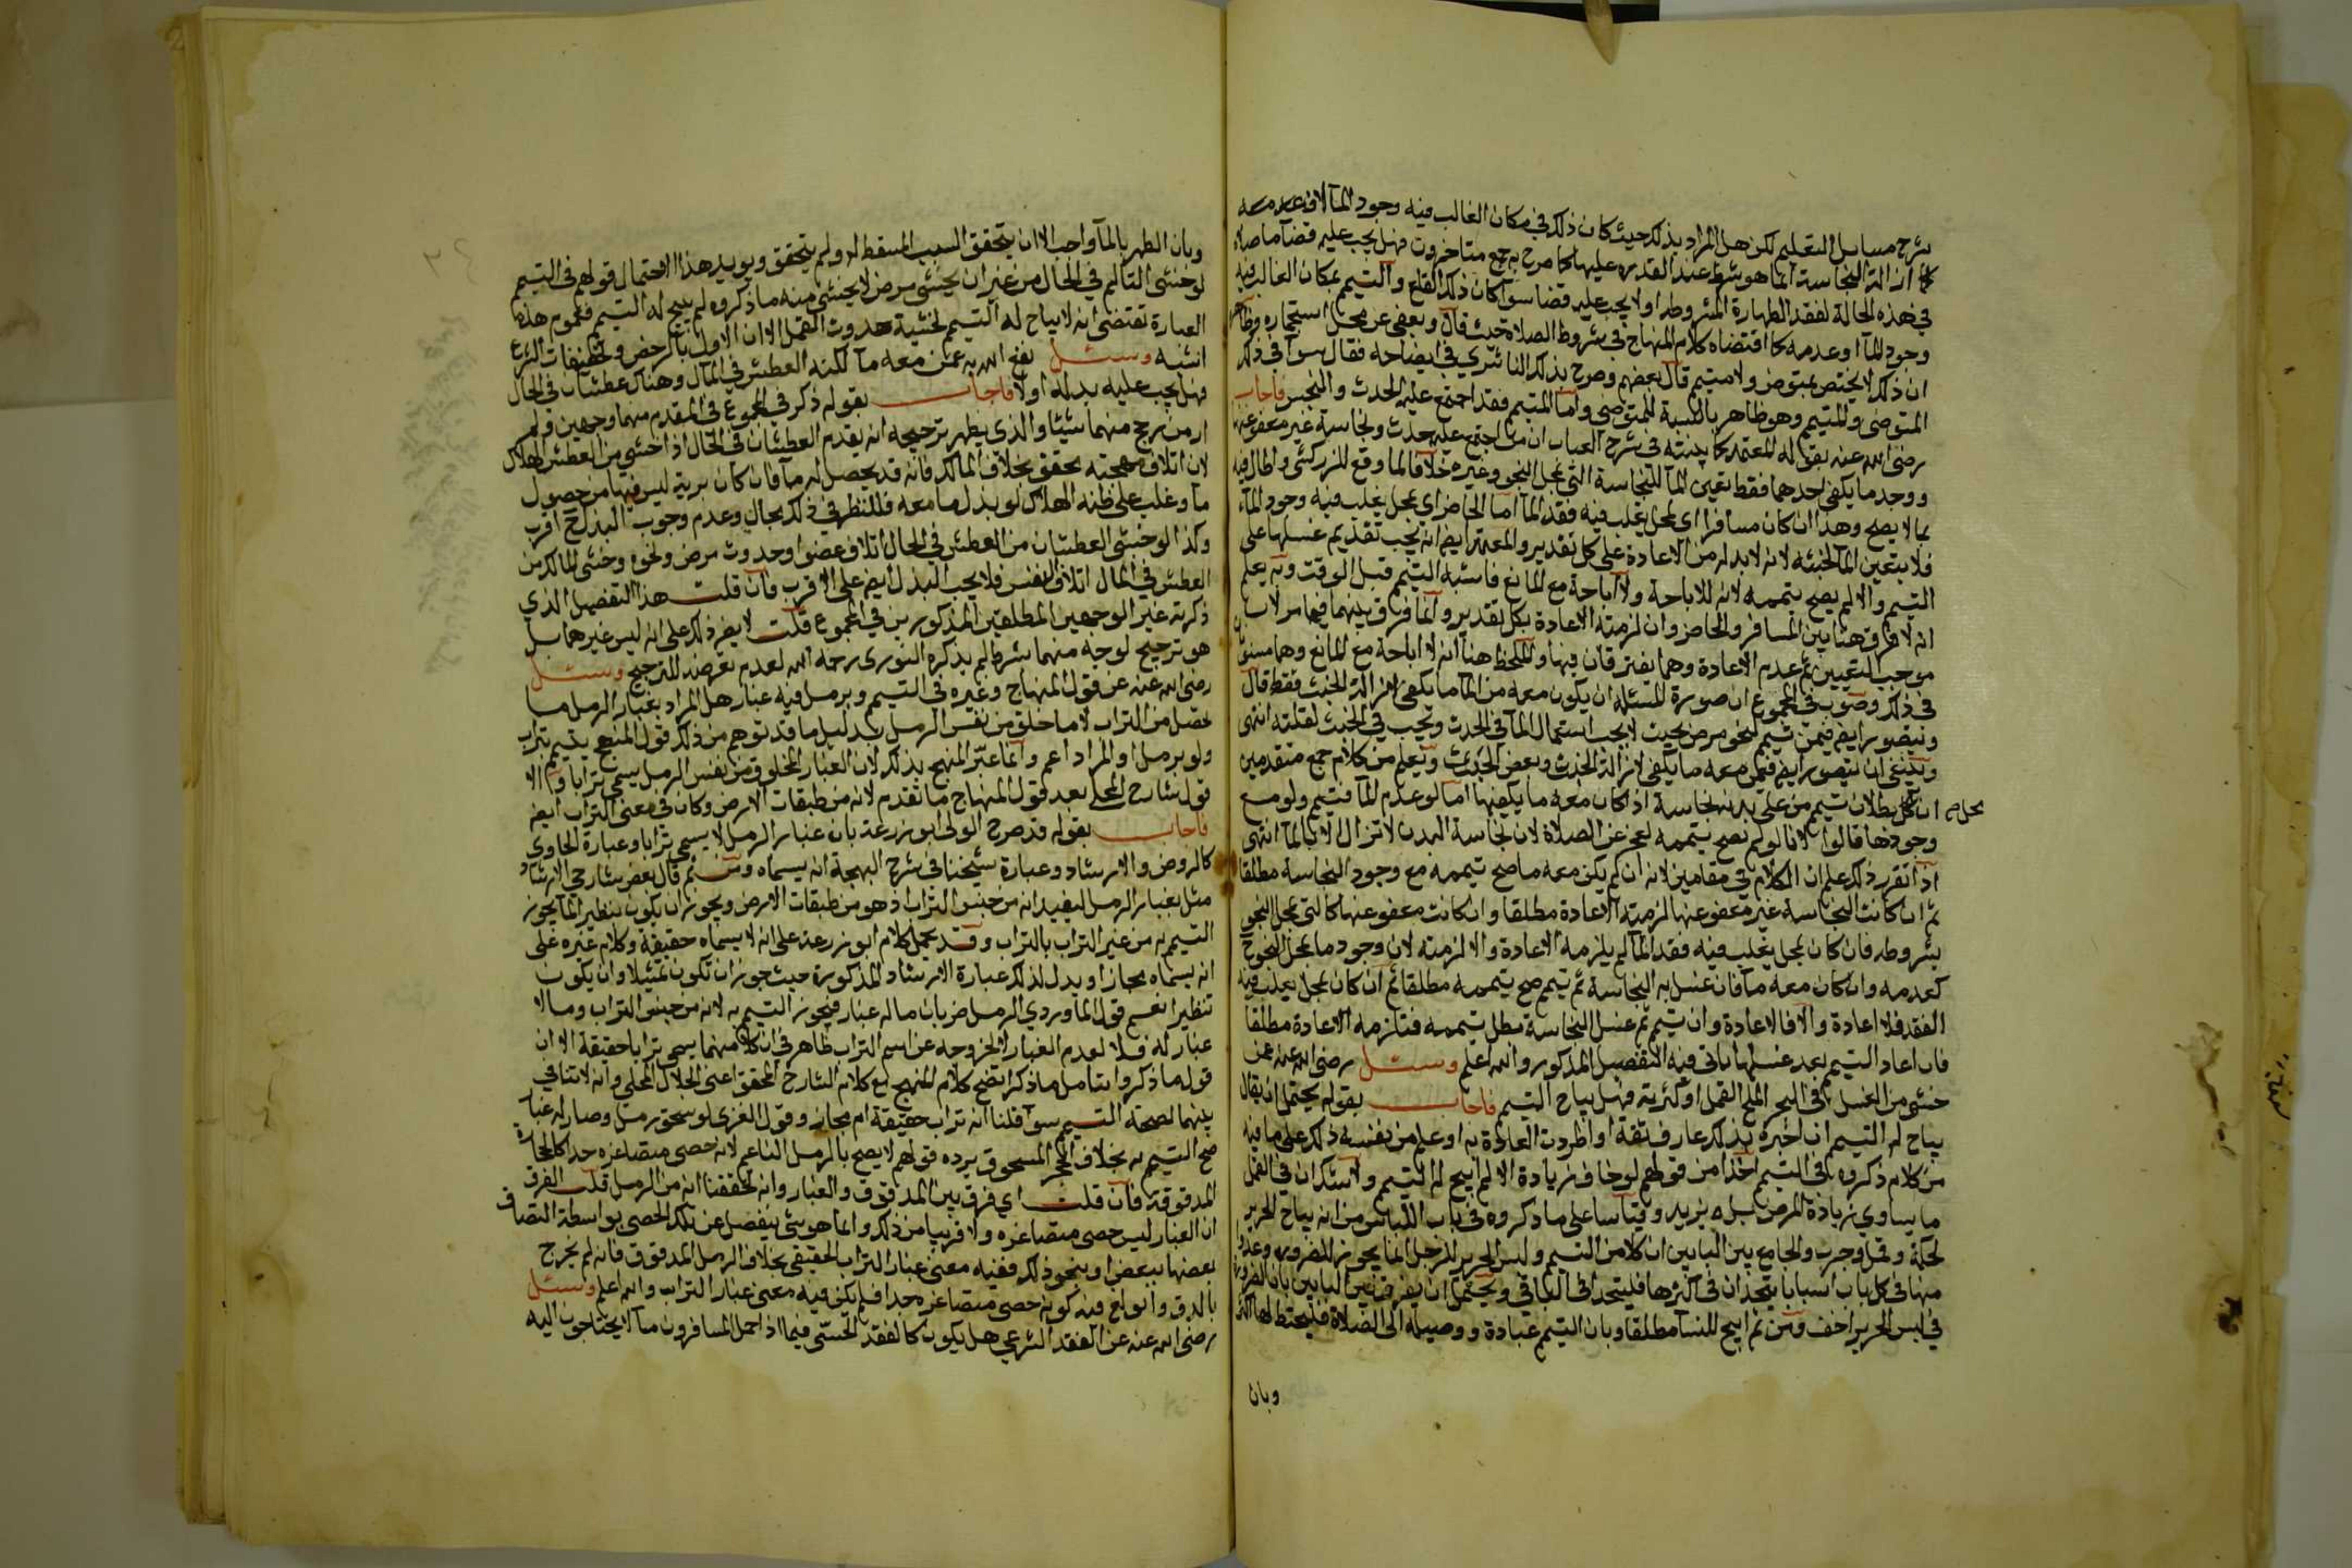 شرح مسايل التعليم لكن هل المراد بذلك حيث كان ذلك في مكان الغالب فيه وجود المآ لا في عدمه
ان ازالة النجاسة انما هو شرط عند القدره عليها كما صرح به جمع متاخرون فهل يجب عليه قضآ ما صلاه
في هذه الحالة لفقد الطهارة المشروطه او لا يجب عليه قضا سوآ كان ذلك القلع والتيمم بمكان الغالب فيه
وجود المآ او عدمه كما اقتضاه كلام المنهاج في شروط الصلاة حيث قال ويعفى عن محل استجماره وظاهر
ان ذلك لا يختص بمتوض ولا متيمم قال بعضهم وصرح بذلك الناشري في ايضاحه فقال سوآ في ذلك
المتوضي والمتيمم وهو ظاهر بالنسبة للمتوضي واما المتيمم فقد اجتمع عليه الحدث والنجس فاجاب
رضي الله عنه بقوله المعتمد كما بينته في شرح العباب ان من اجتمع عليه حدث ونجاسة غير معفو عنها
ووجد ما يكفي احدهما فقط تعين المآ للنجاسة التي بمحل النجو وغيره خلافا لما وقع للزركشي واطال فيه
بما لا يصح وهذا ان كان مسافرا اي بمحل يغلب فيه فقد المآ اما الحاضر اي بمحل يغلب فيه وجود المآء
فلا يتعين المآ لخبثه لانه لا بد له من الاعادة على كل تقدير والمعتمد ايضا انه يجب تقديم غسلها على
التيمم والا لم يصح تيممه لانه للاباحة ولا اباحة مع المانع فاشبه التيمم قبل الوقت وبه يعلم
انه لا فرق هنا بين المسافر والحاضر وان لزمته الاعادة بكل تقدير وانما فرق بينهما فيما مر لان
موجب التعيين ثم عدم الاعادة وهما يفترقان فيها والملحظ هنا انه لا اباحة مع المانع وهما مستويان
في ذلك وصوب في المجموع ان صورة المسئلة ان يكون معه من المآ ما يكفي لازالة الخبث فقط قال
ويتصور ايضا فيمن تيمم لنحو مرض بحيث لا يجب استعمال المآ في الحدث ويجب في الخبث لقلته انتهى
وينبغي ان يتصور ايضا فيمن معه ما يكفي لازالة الخبث وبعض الحدث ويعلم من كلام جمع متقدمين
ان محل بطلان تيمم من على بدنه نجاسة اذا كان معه ما يكفيها اما لو عدم المآ فتيمم ولو مع
وجودها قالوا لانا لو لم نصحح تيممه لعجز عن الصلاة لان نجاسة البدن لا تزال الا بالمآ انتهى
اذا تقرر ذلك علم ان الكلام في مقامين لانه ان لم يكن معه ما صح تيممه مع وجود النجاسة مطلقا
ثم ان كانت النجاسة غير معفو عنها لزمته الاعادة مطلقا وان كانت معفو عنها كالتي بمحل النجو
بشروطه فان كان بمحل يغلب فيه فقد المآ لم يلزمه الاعادة والا لزمته لان وجود ما بمحل النجو ح
كعدمه وان كان معه مآ فان غسل به النجاسة ثم تيمم صح تيممه مطلقا ثم ان كان بمحل يغلب فيه
الفقد فلا اعادة والا فالاعادة وان تيمم ثم غسل النجاسة بطل تيممه فتلزمه الاعادة مطلقا
فان اعاد التيمم بعد غسلها ياتي فيه التفصيل المذكور والله اعلم وسئل رضي الله عنه عمن
خشي من الغسل في البحر الملح القمل او كثرته فهل يباح التيمم فاجاب بقوله يحتمل ان يقال
يباح له التيمم ان اخبره بذلك عارف ثقة او اطردت العادة به او علم من نفسه ذلك على ما فيه
من كلام ذكروه في التيمم اخذا من قولهم لو خاف زيادة الالم ابيح له التيمم ولا شك ان في القمل
ما يساوي زيادة المرض بل يزيد وقياسا على ما ذكروه في باب اللباس من انه يباح الحرير
لحكة وقمل وجرب والجامع بين البابين ان كلا من التيمم ولبس الحرير للرجل انما يجوز للضرورة وعدوا
منها في كل باب اسبابا يتحدان في اكثرها فليتحدا في الباقي ويحتمل ان يفرق بين البابين بان الضرورة
في لبس الحرير اخف ومن ثم ابيح للنسآ مطلقا وبان التيمم عبادة ووسيلة الى الصلاة فليحتط لها اكثر
وبان
وبان الطهر بالمآ واجب الا ان يتحقق السبب المسقط له ولم يتحقق ويويد هذا الاحتمال قولهم في التيمم
لو خشي التالم في الحال من غير ان يخشى مرض لا يخشى منه ما ذكروه لم يبح له التيمم فعموم هذه
العبارة تقتضي انه لا يباح له التيمم لخشية حدوث القمل الا ان الاول بالرخص وتخفيفات الشرع
اشبه وسئل نفع الله به عمن معه مآ لكنه العطش في المآل وهناك عطشان في الحال
فهل يجب عليه بدله او لا فاجاب بقوله ذكر في المجموع في المقدم منهما وجهين ولم
ار من رجح منهما شيئا والذي يظهر ترجيحه انه يقدم العطشان في الحال اذا خشي من العطش الهلاك
لان اتلاف مهجته محقق بخلاف المالك فانه قد يحصل له مآ فان كان برية ليس فيها من حصول
مآ وغلب على ظنه الهلاك لو بذل ما معه فللنظر في ذلك مجال وعدم وجوب البذل ح اقرب
وكذا لو خشي العطشان من العطش في الحال اتلاف عضو او حدوث مرض ونحوه وخشي المالك من
العطش في المآل اتلاف النفس فلا يجب البذل ايضا على الاقرب فان قلت هذا التفصيل الذي
ذكرته غير الوجهين المطلقين المذكورين في المجموع قلت لا يضر ذلك على انه ليس غيرهما بل
هو ترجيح لوجه منهما بشرط لم يذكره النووي رحمه الله لعدم تعرضه للترجيح وسئل
رضي الله عنه عن قول المنهاج وغيره في التيمم وبرمل فيه غبار هل المراد بغبار الرمل ما
حصل من التراب لا ما خلق من نفس الرمل بدليل ما قد توهم من ذلك قول المنهج يتيمم بتراب
ولو برمل او المراد اعم وانما عبر المنهج بذلك لان الغبار المخلوق من نفس الرمل يسمى ترابا والا
قول شارح المحلي بعد قول المنهاج ما تقدم لانه من طبقات الارض وكان في معنى التراب ايضا
فاجاب بقوله قد صرح الولي ابو زرعة بان غبار الرمل لا يسمى ترابا وعبارة الحاوي
كالروض والارشاد وعبارة شيخنا في شرح البهجة انه يسماه ومن ثم قال بعض شارحي الارشاد
مثل بغبار الرمل ليفيد انه من جنس التراب اذ هو من طبقات الارض ويجوز ان يكون تنظيرا لما يجوز
التيمم به من غير التراب بالتراب وقد يحمل كلام ابو زرعة على انه لا يسماه حقيقة وكلام غيره على
انه يسماه مجازا ويدل لذلك عبارة الارشاد المذكورة حيث جوز ان تكون تمثيلا وان يكون
تنظيرا نعم قول الماوردي الرمل ضربان ما له غبار فيجوز التيمم به لانه من جنس التراب وما لا
غبار له فلا لعدم الغبار لا لخروجه عن اسم التراب ظاهر في ان كلا منهما يسمى ترابا حقيقة الا ان
قول ما ذكروا بتامل ما ذكر اتضح كلام المنهج مع كلام الشارح المحقق اعني الجلال المحلي وانه لا تنافي
بينهما لصحة التيمم سوآ قلنا انه تراب حقيقة ام مجاز وقول الغزي لو سحق رمل وصار له غبار
صح التيمم به بخلاف الحجر المسحوق يرده قولهم لا يصح بالرمل الناعم لانه حصى متصاغره جدا كالحجارة
المدقوقة فان قلت اي فرق بين المدقوق والغبار وانه لحققنا انه من الرمل قلت الفرق
ان الغبار ليس حصى متصاغره ولا قريبا من ذلك وانما هو شي ينفصل عن تلك الحصى بواسطة التصاق
بعضها ببعض او بنحو ذلك ففيه معنى غبار التراب الحقيقي بخلاف الرمل المدقوق فانه لم يخرج
بالدق وانواع فيه كونه حصى متصاغره جدا فلم يكن فيه معنى غبار التراب والله اعلم وسئل
رضي الله عنه عن الفقد الشرعي هل يكون كالفقد الحسي فيما اذا حمل المسافرون مآ لا يحتاجون اليه